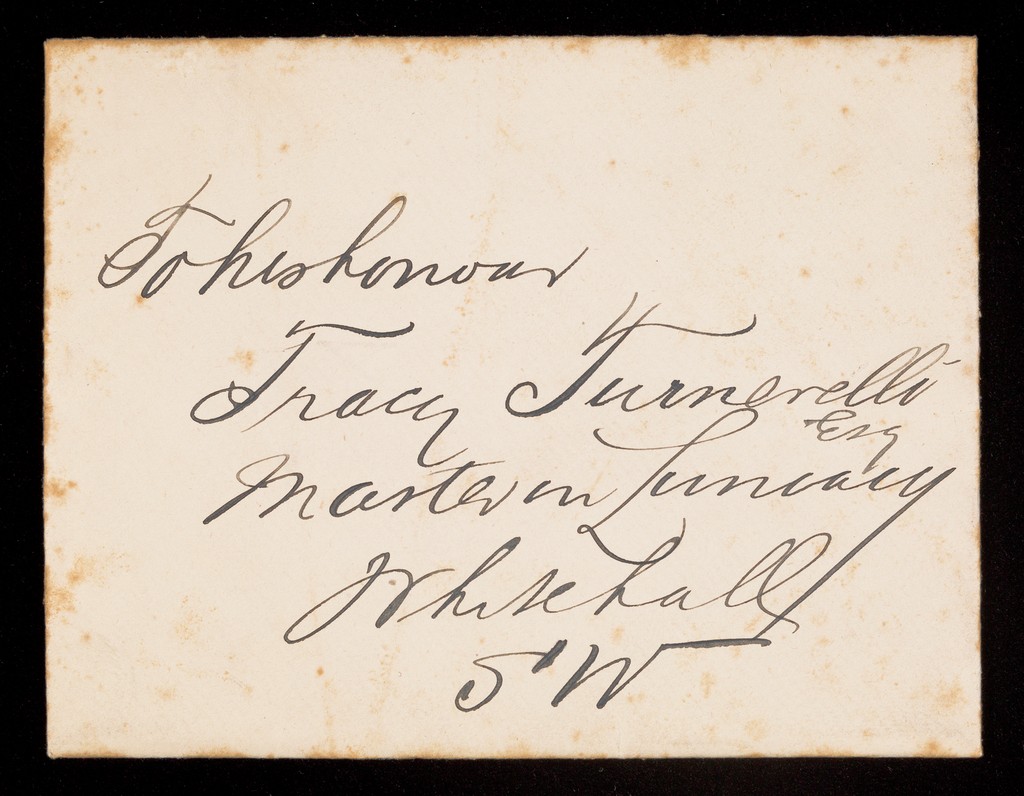 To his honour
Tracy Turnerelli
Esq
Master in Lunacy
Whitehall
S W